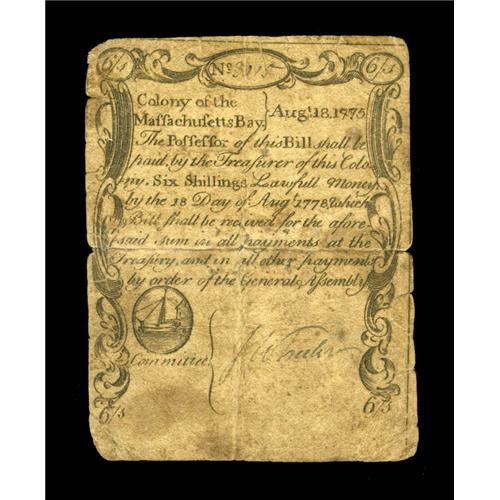 6/s No 3115 6/s
Colony of the
Maſsachusetts Bay, } Augt. 18. 1775
The Poſseſsor of this Bill shall be
paid, by the Treasurer of this Colo
ny, Six Shillings Lawfull Money
by the 18 Day of Augt. 1778 which
Bill shall be received for the afore
said sum in all payments at the
Treasury, and in all other payments
by order of the General Aſsembly
Committee
6/s 6/s